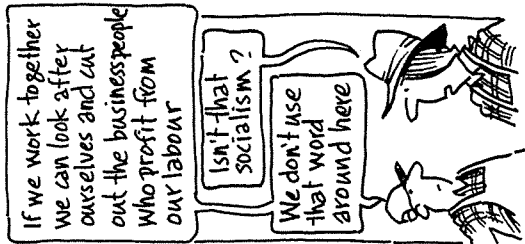 If we work together
we can look after
ourselves and cut
out the businesspeople
who profit from
our labour
Isn't that
socialism?
We don't use
that word
around here